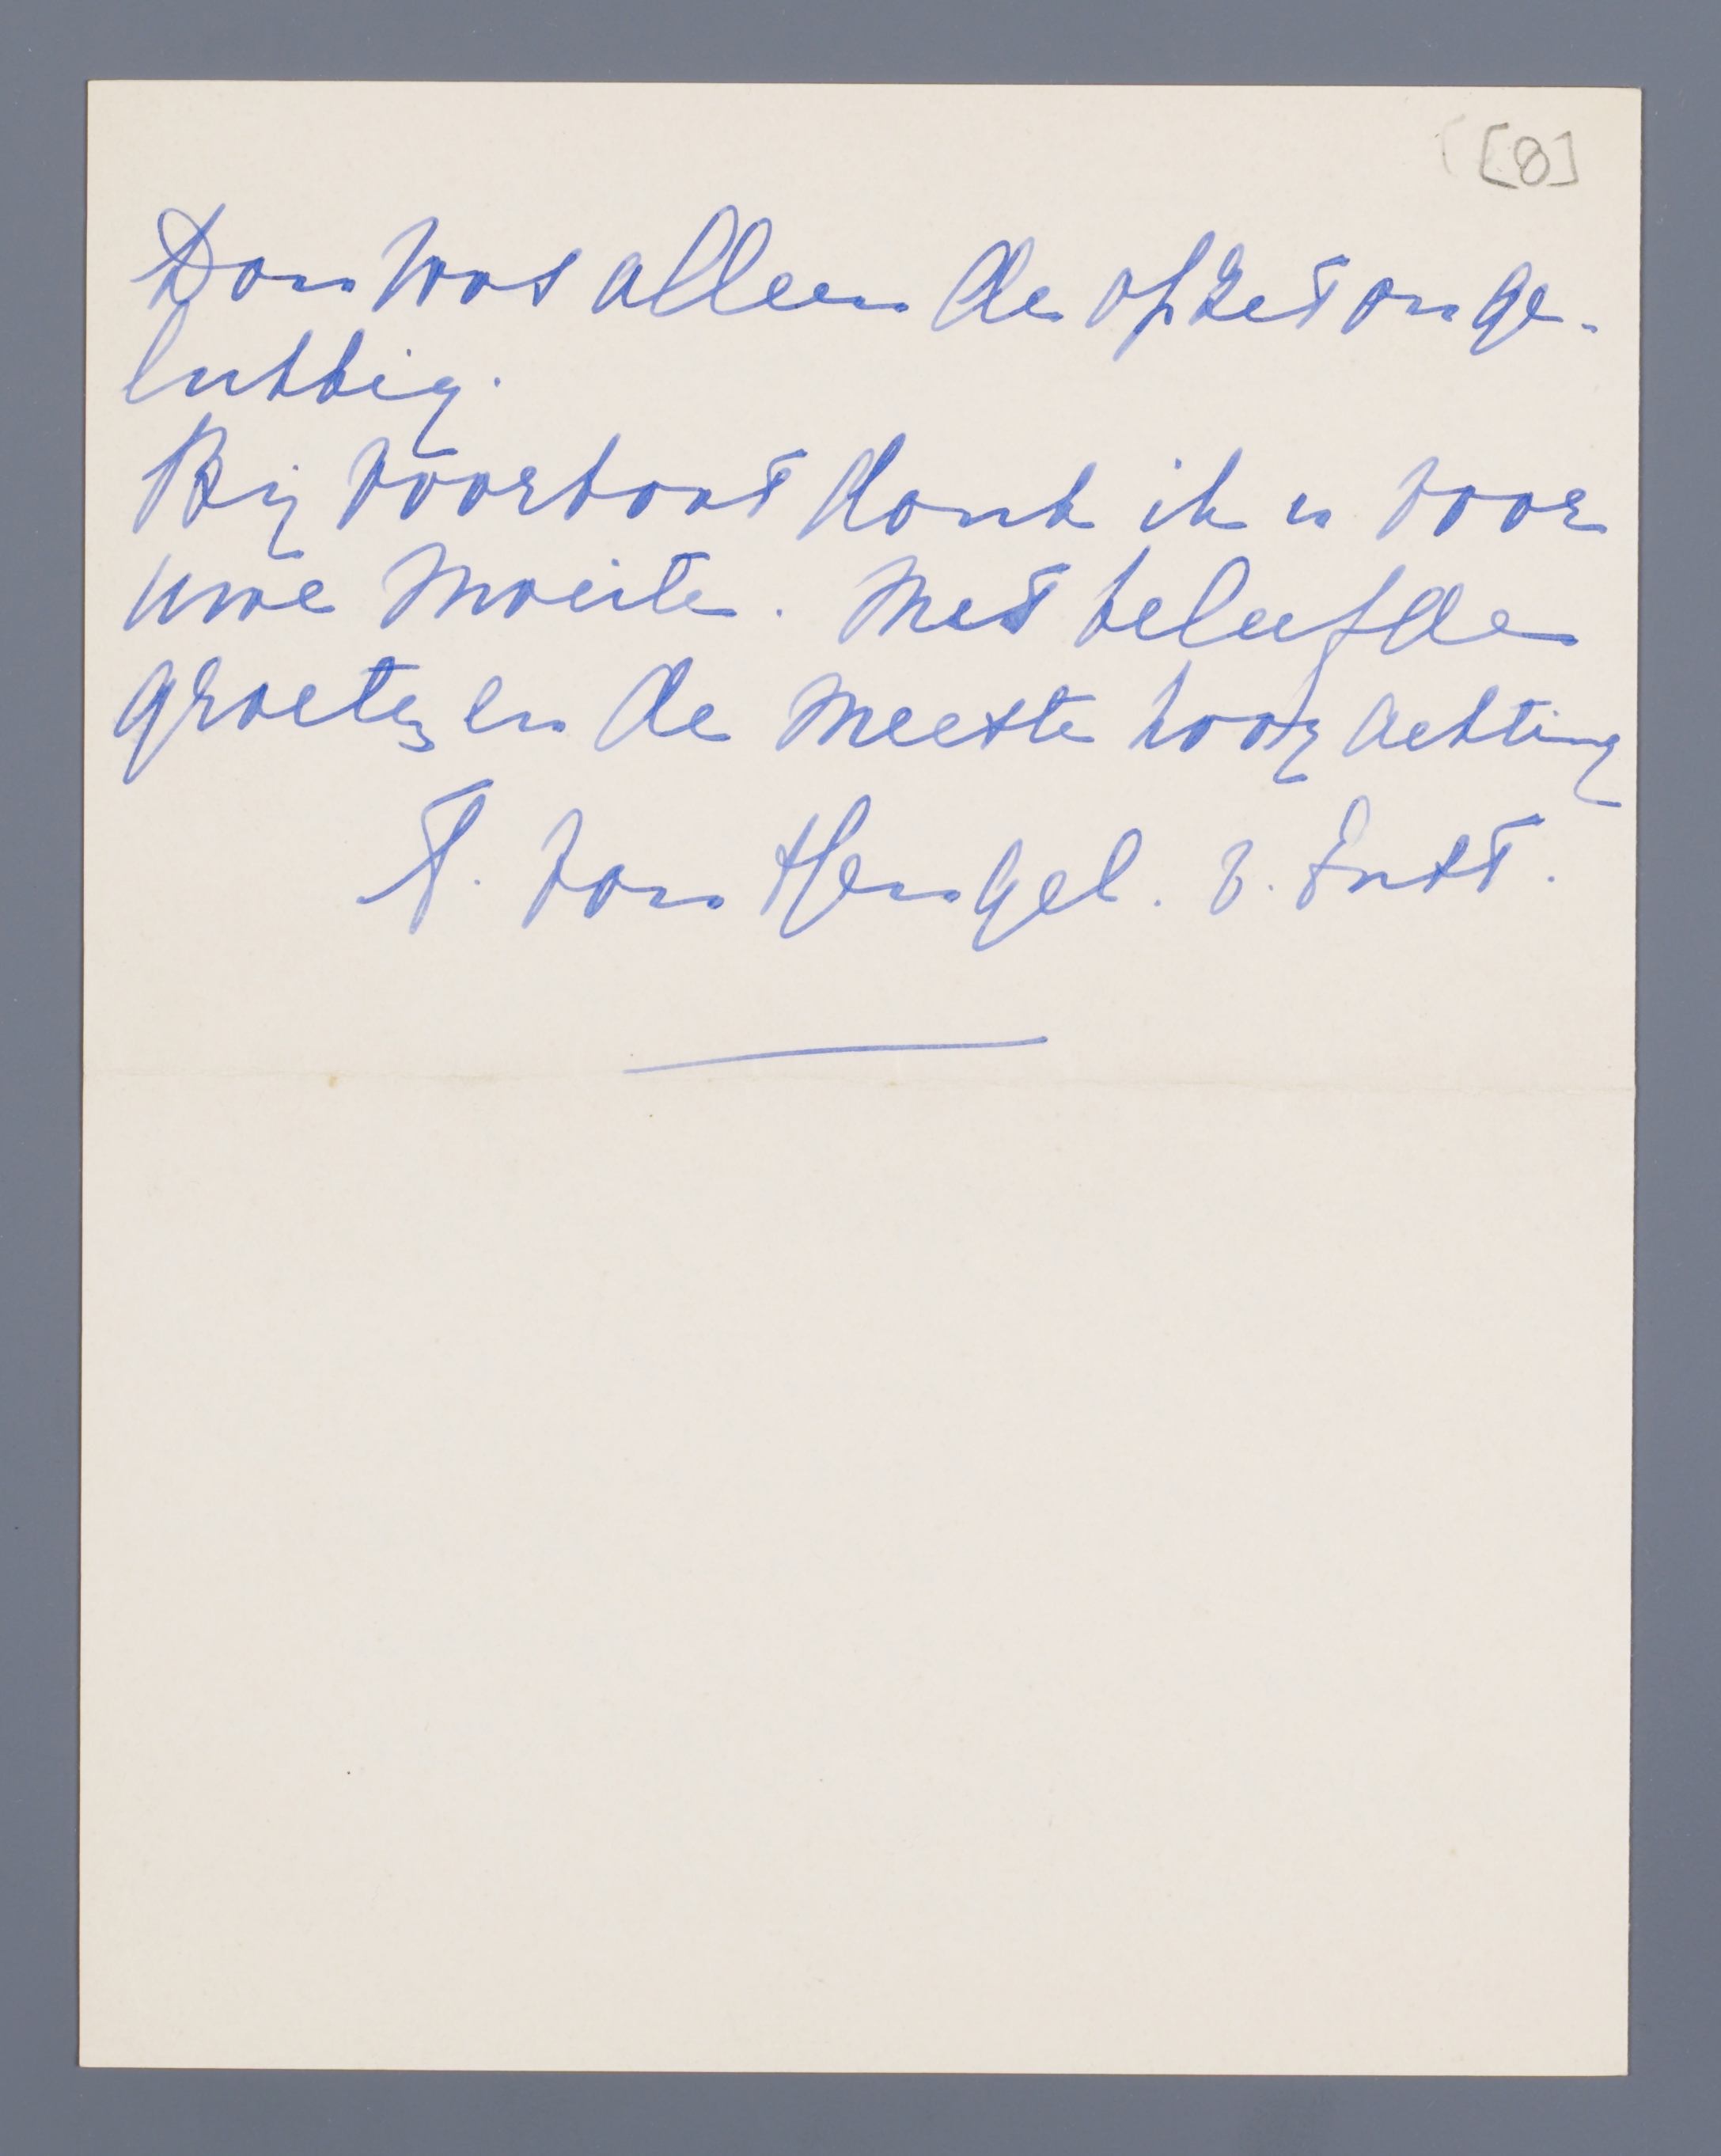 [8]
Dan was alleen de opzet onge-
lukkig.
Bij voorbaat dank ik u voor
uwe moeite. Met beleefde
groeten en de meeste hoogachting
T. van Hengel. v. Eust.